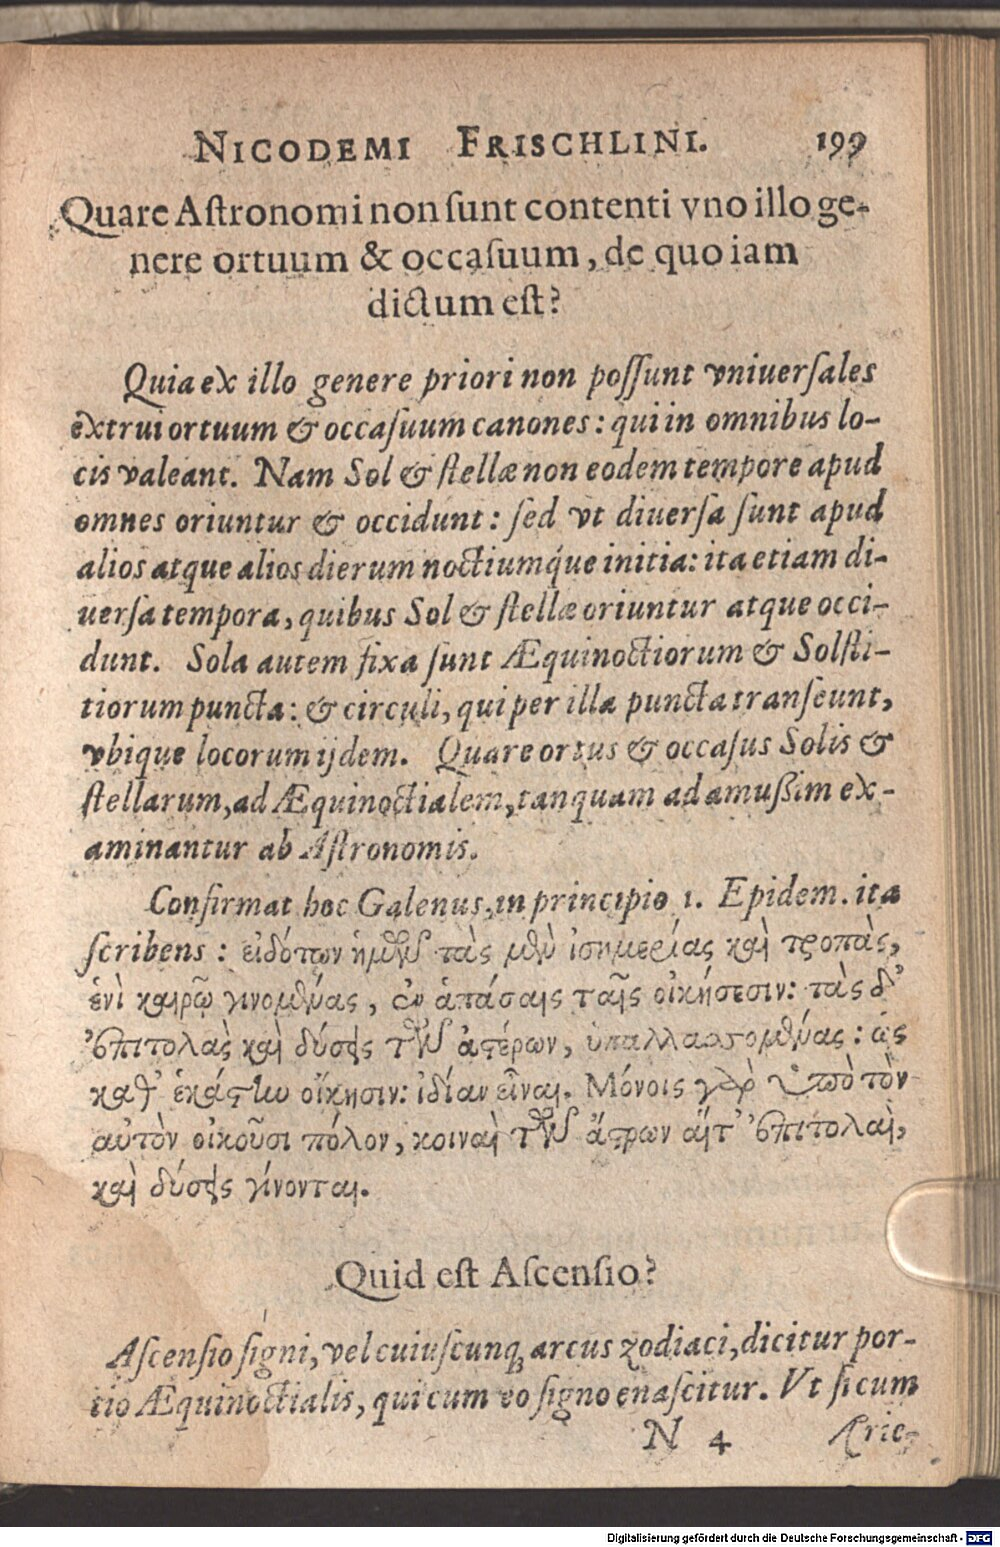 NICODEMI FRISCHLINI. 199
Quare Aſtronomi non ſunt contenti vno illo ge-
nere ortuum & occaſuum, de quo iam
dictum eſt?
Quia ex illo genere priori non poſſunt vniuerſales
extrui ortuum & occaſuum canones: qui in omnibus lo-
cis valeant. Nam Sol & ſtellæ non eodem tempore apud
omnes oriuntur & occidunt: ſed vt diuerſa ſunt apud
alios atque alios dierum noctiumq́ue initia: ita etiam di-
uerſa tempora, quibus Sol & ſtellæ oriuntur atque occi-
dunt. Sola autem fixa ſunt Æquinoctiorum & Solſti-
tiorum puncta: & circuli, qui per illa puncta tranſeunt,
vbique locorum ijdem. Quare ortus & occaſus Solis &
ſtellarum, ad Æquinoctialem, tanquam ad amuſſim ex-
aminantur ab Aſtronomis.
Confirmat hoc Galenus, in principio 1. Epidem. ita
ſcribens: εἰδότων ἡμῶν τὰς μὲν ἰσημερίας καὶ τροπὰς,
ἑνὶ καιρῷ γινομένας, ἐν ἁπάσαις ταῖς οἰκήσεσιν: τὰς δ'
ἐπιτολὰς καὶ δύσεις τῶν ἀστέρων, ὑπαλλαττομένας: ὡς
καθ' ἑκάστην οἴκησιν: ἰδίαν εἶναι. Μόνοις γὰρ ὑπὸ τὸν
αὐτὸν οἰκοῦσι πόλον, κοιναὶ τῶν ἄστρων αἵτ' ἐπιτολαὶ,
καὶ δύσεις γίνονται.
Quid eſt Aſcenſio?
Aſcenſio ſigni, vel cuiuſcunq; arcus zodiaci, dicitur por-
tio Æquinoctialis, qui cum eo ſigno enaſcitur. Vt ſi cum
N 4 Arie-
Digitalisierung gefördert durch die Deutsche Forschungsgemeinschaft - DFG